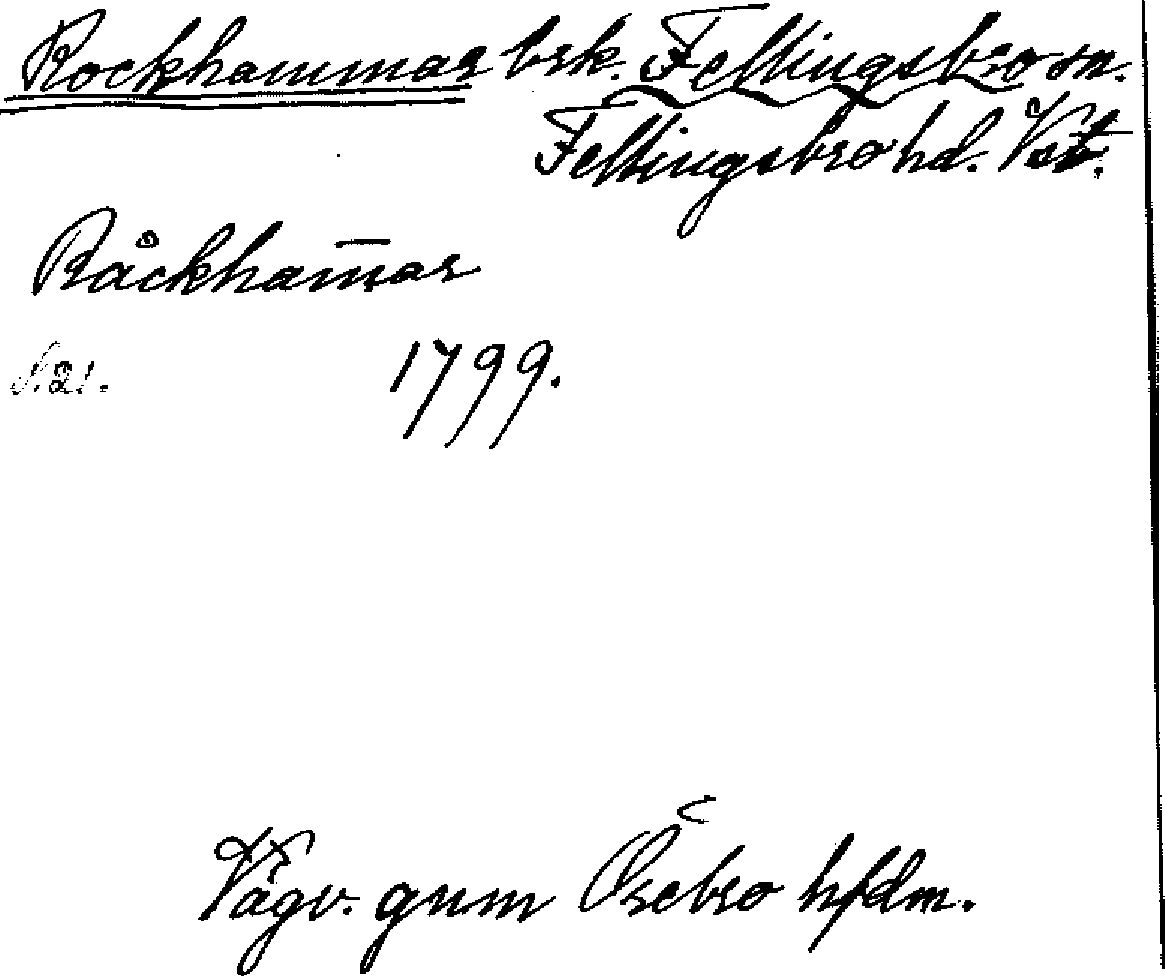 Rockhammar brk. Fellingsbro sn.
Fellingsbro hd. Vstm.
Råckham̄ar
S. 21. 1799.
Vägv. gnm Örebro höfdm.